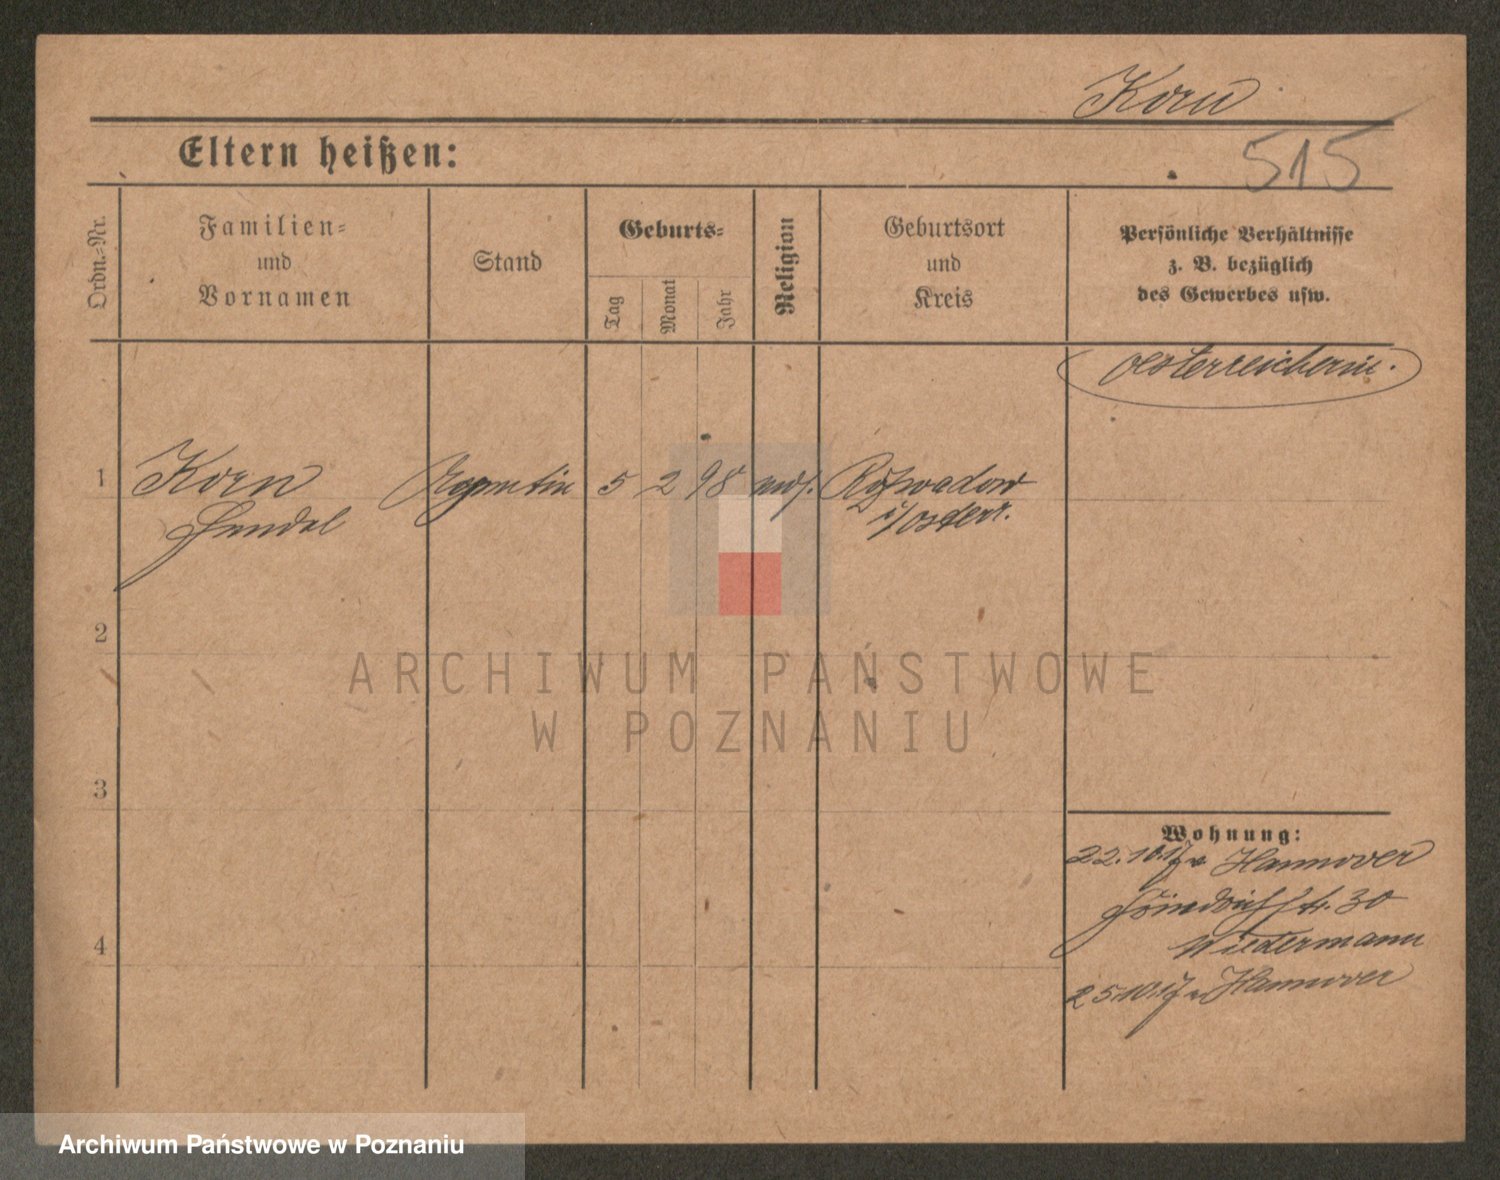 Korn
Eltern heißen:
515
Ordn.-Nr.
Familien-
und
Vornamen
Stand
Geburts-
Tag
Monat
Jahr
Religion
Geburtsort
und
Kreis
Persönliche Verhältnisse
z. B. bezüglich
des Gewerbes usw.
Oesterreicherin.
1
Korn
5
2
98
mos.
Rozwadow
i/Osterr.
2
ARCHIWUM PAŃSTWOWE
W POZNANIU
3
Wohnung:
22.10.17 v. Hannover
30
Wiedermann
4
25.10.17 n Hannover
Archiwum Państwowe w Poznaniu